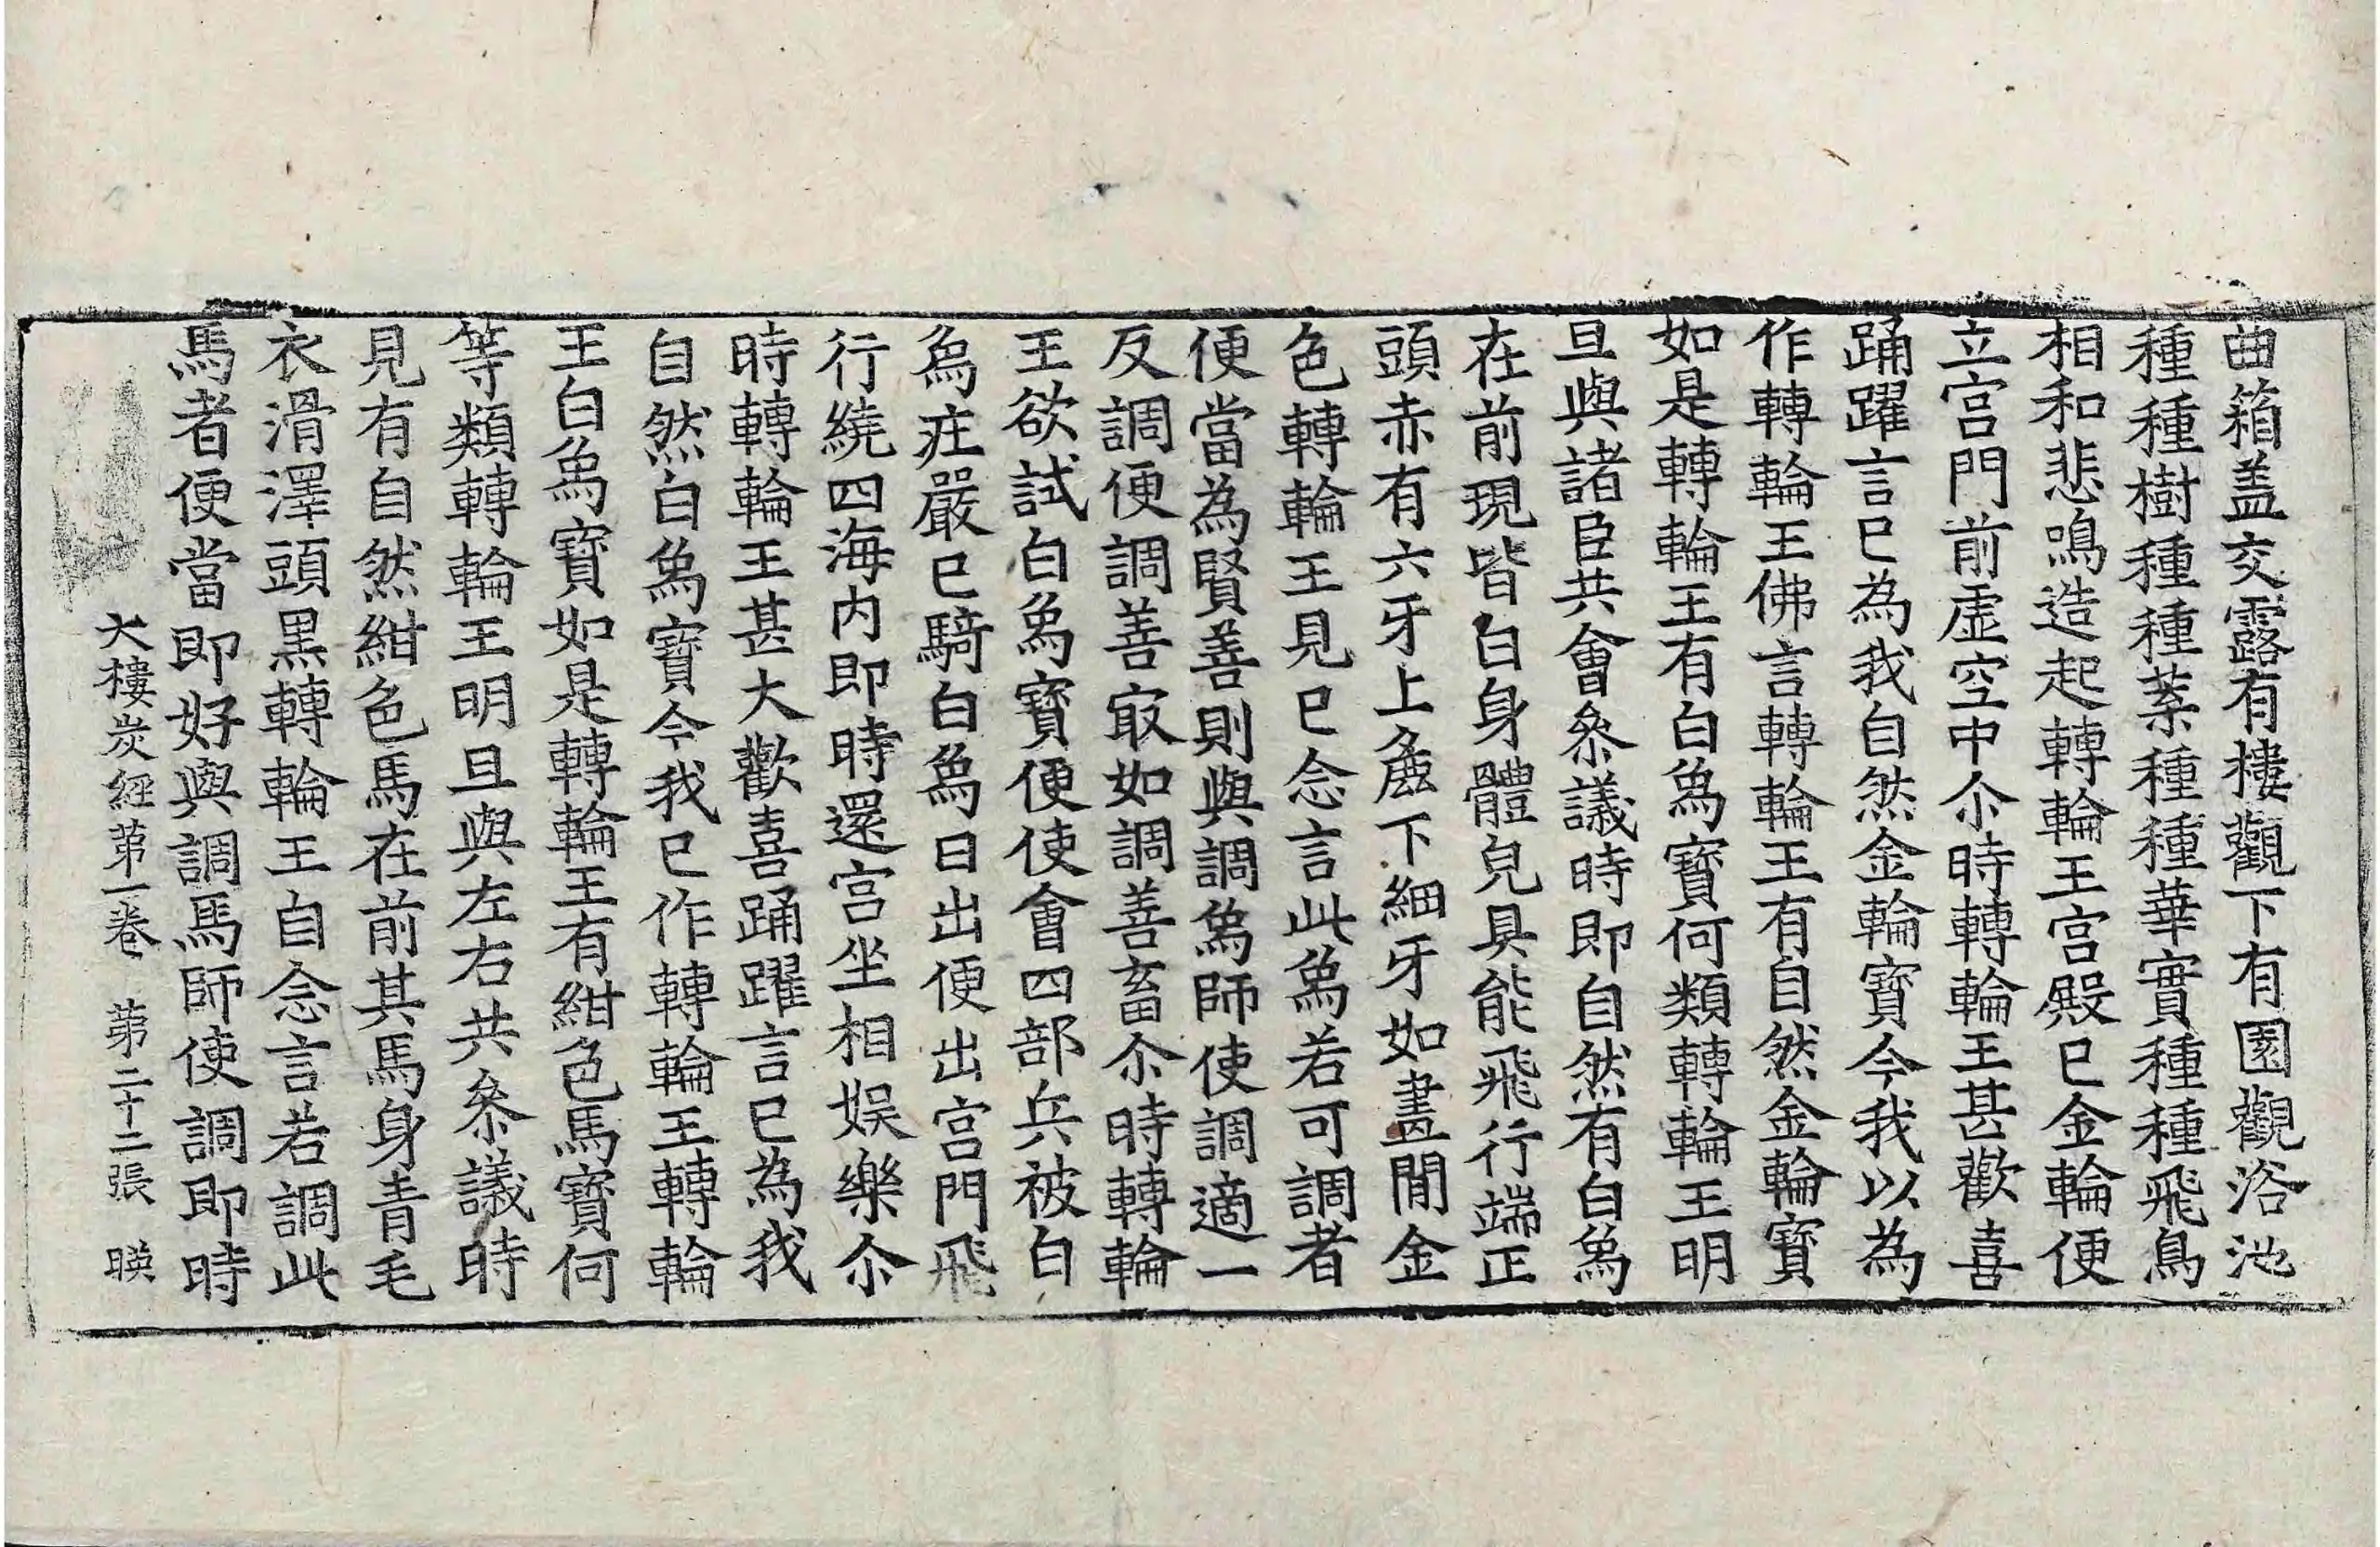 曲箱盖交露有樓觀下有園觀浴池
種種樹種種葉種種華實種種飛鳥
相和悲鳴造起轉輪王宮殿已金輪便
立宮門前虛空中尒時轉輪王甚歡喜
踊躍言已為我自然金輪寶今我以為
作轉輪王佛言轉輪王有自然金輪寶
如是轉輪王有白爲寶何類轉輪王明
旦與諸臣共會叅議時即自然有白爲
在前現皆白身體皃具能飛行端正
頭赤有六牙上麁下細牙如畫閒金
色轉輪王見已念言此爲若可調者
便當為賢善則與調爲師使調適一
反調便調善㝡如調善畜尒時轉輪
王欲試白爲寶便使會四部兵被白
爲庄嚴已騎白爲日出便出宮門飛
行繞四海內即時還宮坐相娛樂尒
時轉輪王甚大歡喜踊躍言已為我
自然白爲寶今我已作轉輪王轉輪
王白爲寶如是轉輪王有紺色馬寶何
等類轉輪王明旦與左右共叅議時
見有自然紺色馬在前其馬身青毛
衣滑澤頭黒轉輪王自念言若調此
馬者便當即好與調馬師使調即時
大樓炭經苐一卷　苐二十二張　暎